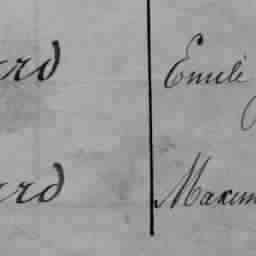 ard Emile
ard Maxim